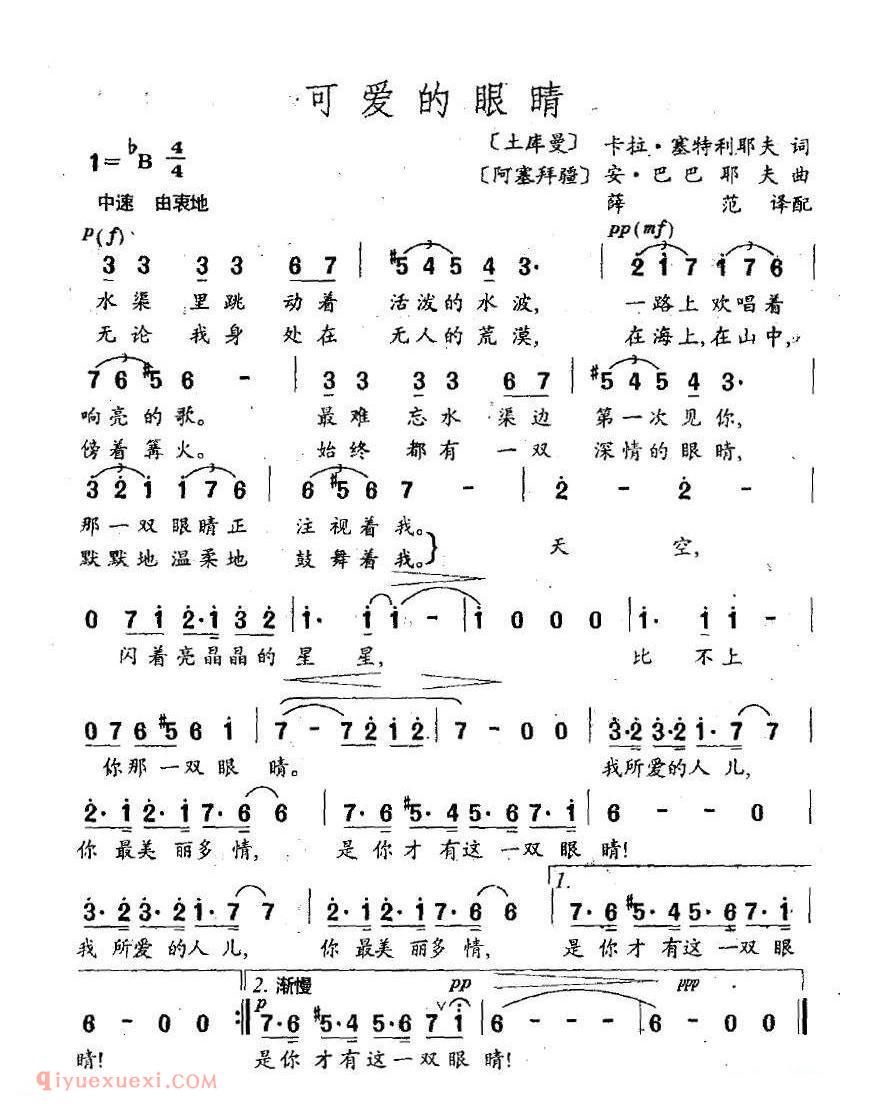 可爱的眼睛
〔土库曼〕 卡拉·塞特利耶夫 词
1=♭B 4/4
〔阿塞拜疆〕 安·巴巴耶夫 曲
中速 由衷地
薛范 译配
p(f) pp(mf)
3 3 3 3 6 7 | #5 4 5 4 3· | 2 1 7 1 7 6 |
水渠里跳动着 活泼的水波, 一路上欢唱着
无论我身处在 无人的荒漠, 在海上,在山中,
7 6 #5 6 - | 3 3 3 3 6 7 | #5 4 5 4 3· |
响亮的歌。 最难忘水渠边 第一次见你,
傍着篝火。 始终都有一双 深情的眼睛,
3 2 1 1 7 6 | 6 #5 6 7 - | 2 - 2 - |
那一双眼睛正 注视着我。
默默地温柔地 鼓舞着我。} 天空,
0 7 1 2·1 3 2 | 1· 1 1 - | 1 0 0 0 | 1· 1 1 - |
闪着亮晶晶的星星, 比不上
0 7 6 #5 6 1 | 7 - 7 2 1 2 | 7 - 0 0 | 3·2 3·2 1·7 7 |
你那一双眼睛。 我所爱的人儿,
2·1 2·1 7·6 6 | 7·6 #5·4 5·6 7·1 | 6 - - 0 |
你最美丽多情, 是你才有这一双眼睛!
1.
3·2 3·2 1·7 7 | 2·1 2·1 7·6 6 | 7·6 #5·4 5·6 7·1 |
我所爱的人儿, 你最美丽多情, 是你才有这一双眼
2. 渐慢 pp ppp
p
6 - 0 0 :‖ 7·6 #5·4 5·6 7 1 | 6 - - - | 6 - 0 0 ‖
睛! 是你才有这一双眼睛!
qiyuexuexi.com